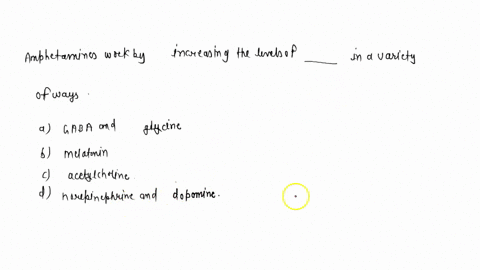 Amphetamines work by increasing the levels of ____ in a variety
of ways.
a) GABA and glycine
b) melatmin
c) acetylcholine
d) norepinephrine and dopomine.